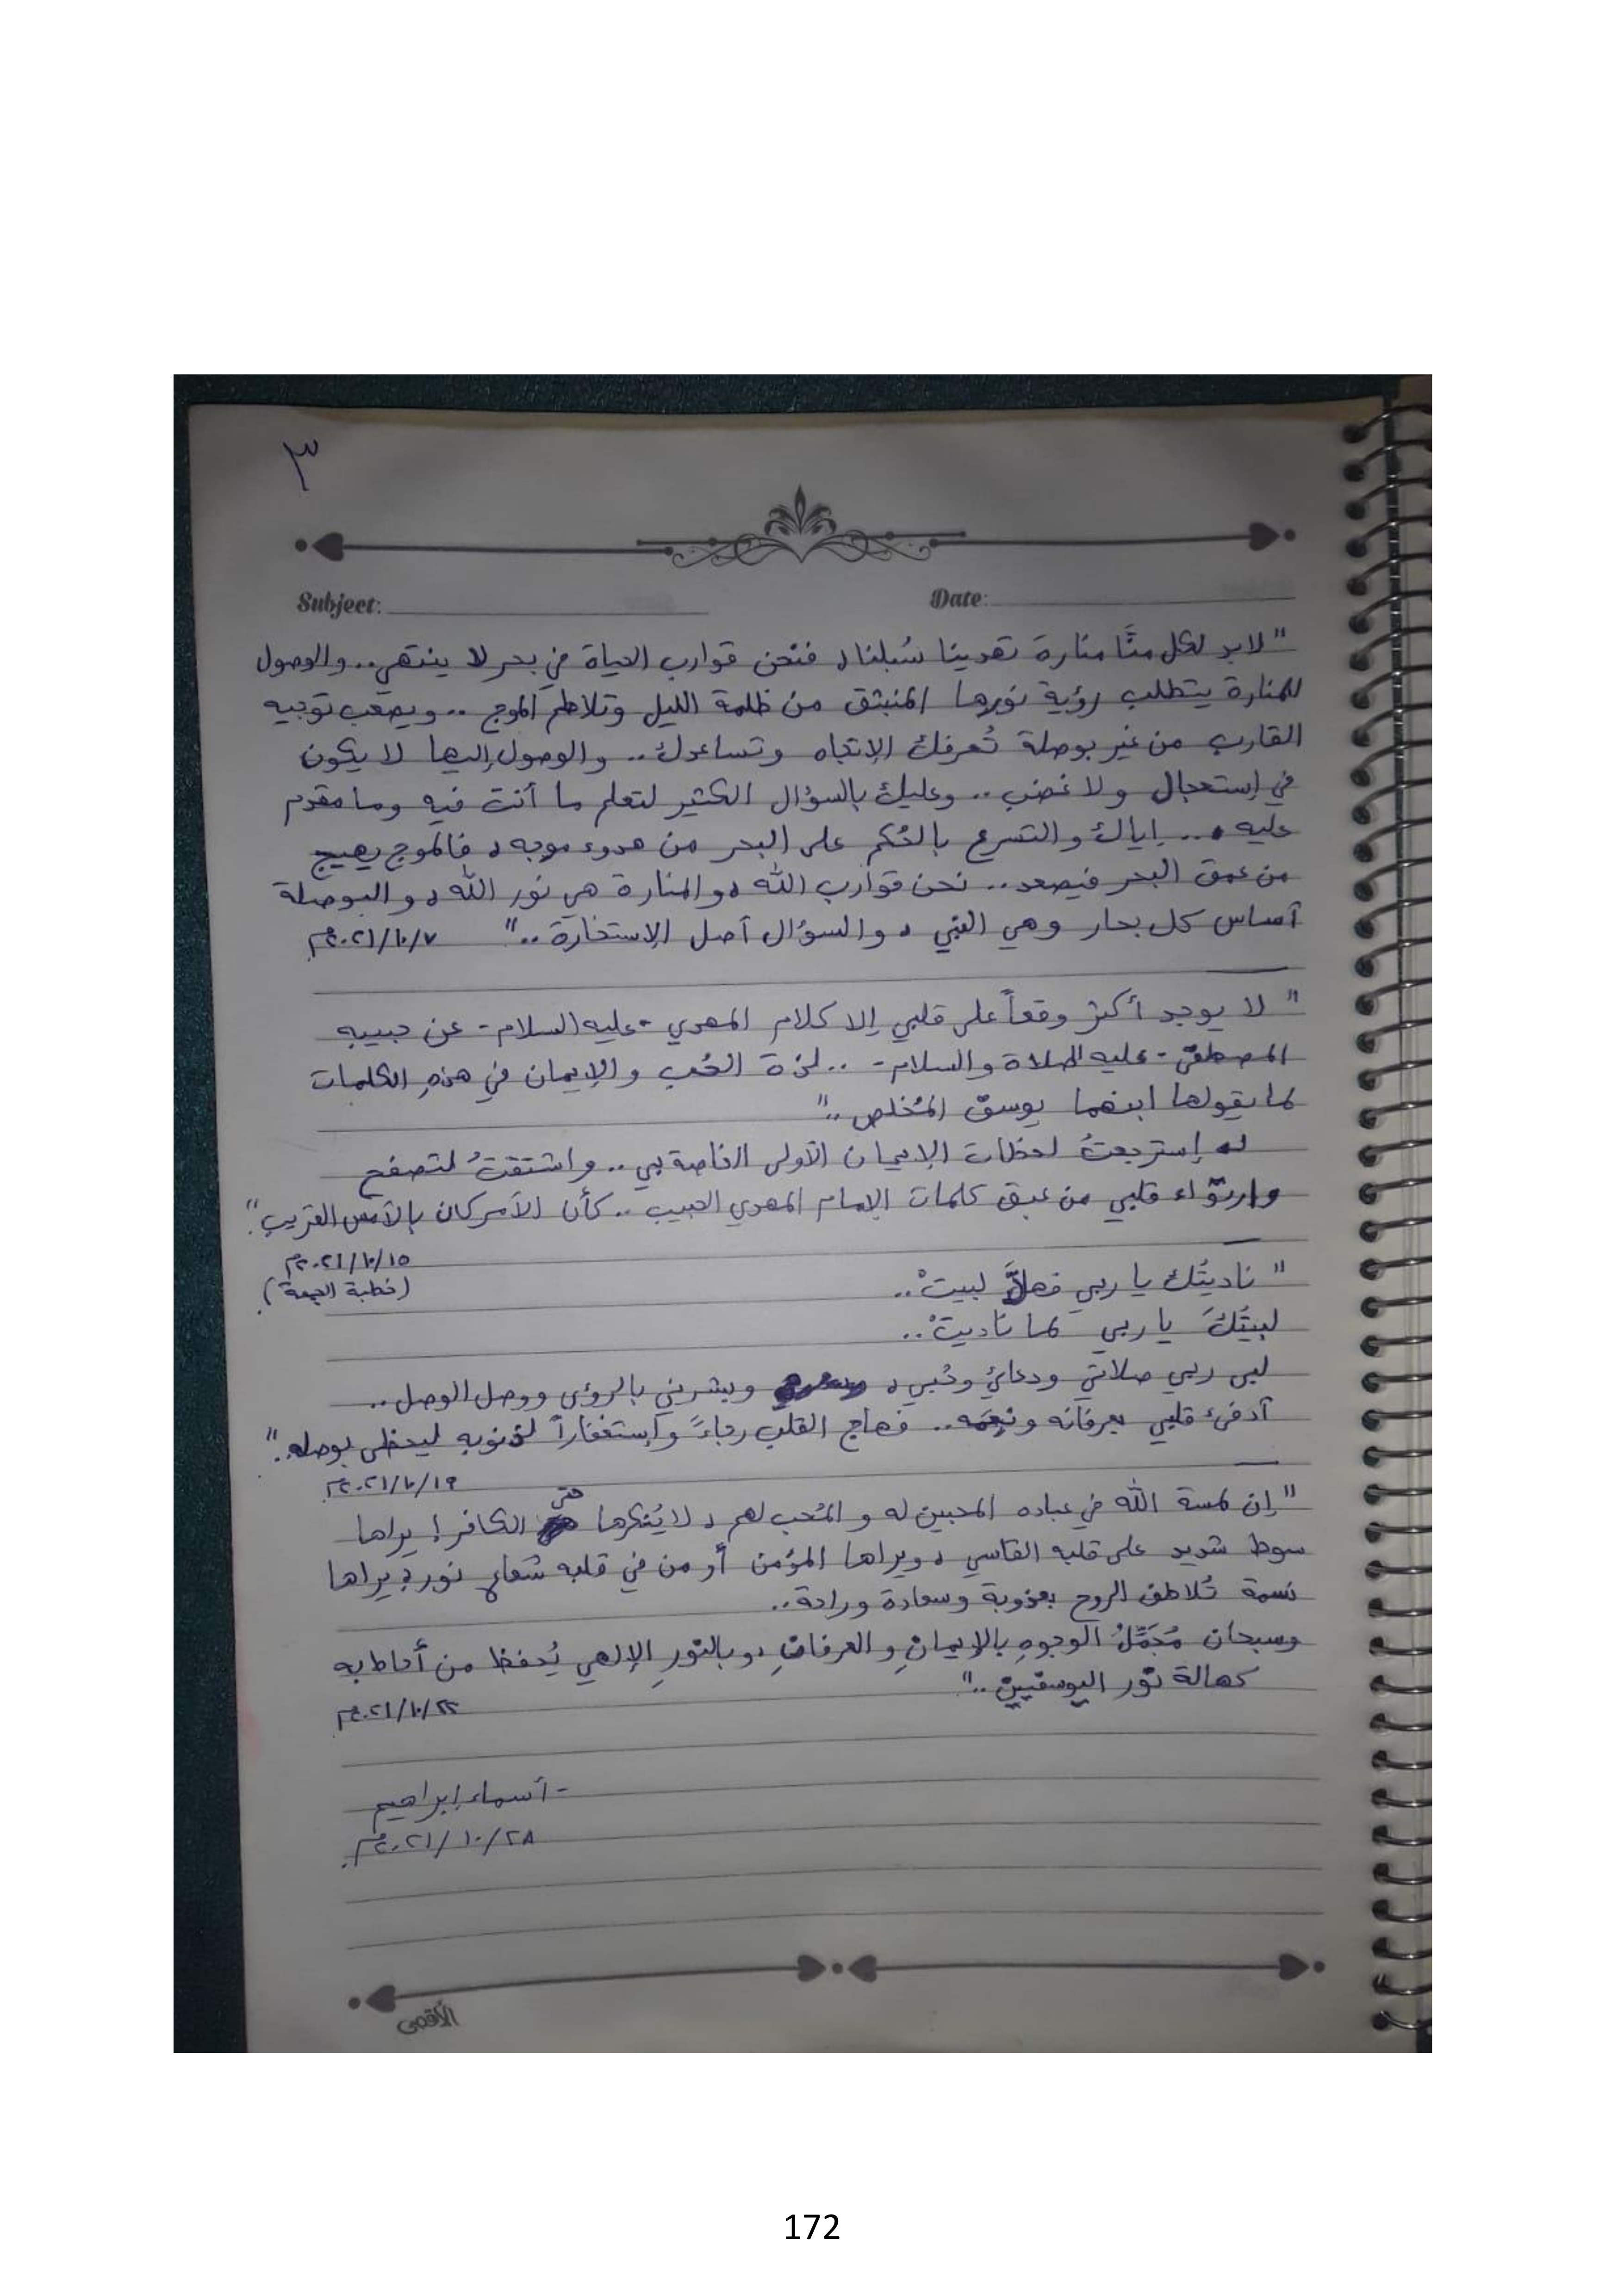 ٣
Subject:
Date:
" لابد لكل منَّا منارة تهدينا سُبلنا، فنحن قوارب الحياة في بحر لا ينتهي.. والوصول
للمنارة يتطلب رؤية نورها المنبثق من ظلمة الليل وتلاطم الموج .. ويصعب توجيه
القارب من غير بوصلة تُعرفك الإتجاه وتساعدك.. والوصول إليها لا يكون
في إستعجال ولا غضب .. وعليك بالسؤال الكثير لتعلم ما أنت فيه وما مقدم
عليه ... إياك والتسرع بالحُكم على البحر من هدوء موجه، فالموج يهيج
من عمق البحر فيصعد .. نحن قوارب الله، والمنارة هي نور الله، والبوصلة
أساس كل بحار وهي النبي، والسؤال أصل الإستخارة .."
٢٠٢١/١٠/٧م
" لا يوجد أكثر وقعاً على قلبي إلا كلام المهدي - عليه السلام - عن حبيبه
المصطفى - عليه الصلاة والسلام - .. لذة الحُب والإيمان في هذهِ الكلمات
كما يقولها ابنهما يوسف المُخلص .."
إسترجعتُ لحظات الإيمان الأولى الخاصة بي.. واشتقتُ لتصفح
وارتواء قلبي من عبق كلمات الإمام المهدي الحبيب .. كأن الأمر كان بالأمس القريب."
٢٠٢١/١٠/١٥م
(خطبة الجمعة)
" ناديتُك يا ربي فهلَّا لبيتْ..
لبيتُكَ يا ربي كما ناديتْ..
لبى ربي صلاتي ودعائي وحُبي، وبشرني بالرؤى ووصل الوصل ..
أدفئ قلبي بعرفانه ونِعَمه .. فهاج القلب رجاءً وإستغفاراً لذنوبه ليحظى بوصله."
٢٠٢١/١٠/١٩م
" إن لمسة الله في عباده المحبين له والمُحب لهم، لا يُنكرها حتى الكافر! يراها
سوط شديد على قلبه القاسي، ويراها المؤمن أو من في قلبه شعاع نور، يراها
نسمة تُلاطف الروح بعذوبة وسعادة وراحة ..
وسبحان مُجَمِّلُ الوجوهِ بالإيمانِ والعرفانِ، وبالنورِ الإلهي يُحفظ من أحاط به
كهالة نور اليوسفيين .."
٢٠٢١/١٠/٢٢م
- أسماء إبراهيم
٢٠٢١/١٠/٢٨م.
الأقصى
172